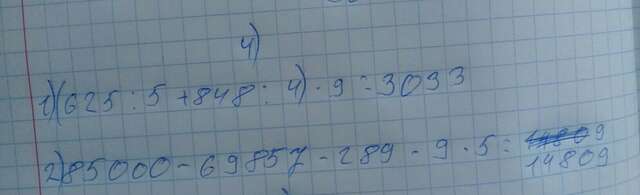 4)
1)(625 : 5 + 848 : 4) · 9 = 3033
2) 85000 - 69857 - 289 - 9 · 5 = 14809